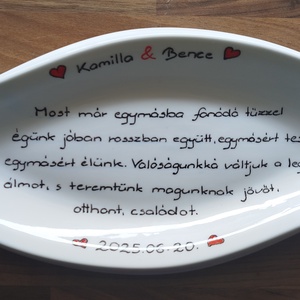 Kamilla & Bence
Most már egymásba fonódó tűzzel
égünk jóban rosszban együtt, egymásért
egymásért élünk. Valóságunkká váltjuk a
álmot, s teremtünk magunknak jövőt,
otthont, családot.
2025.06.20.